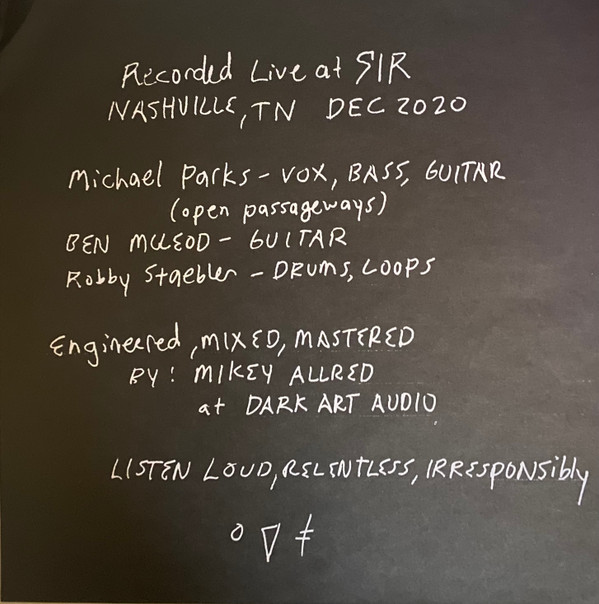 Recorded Live at SIR
NASHVILLE, TN DEC 2020
Michael Parks - VOX, BASS, GUITAR
(open passageways)
BEN MCLEOD - GUITAR
Robby Staebler - DRUMS, LOOPS
Engineered, MIXED, MASTERED
BY: MIKEY ALLRED
at DARK ART AUDIO
LISTEN LOUD, RELENTLESS, IRRESPONSIbly